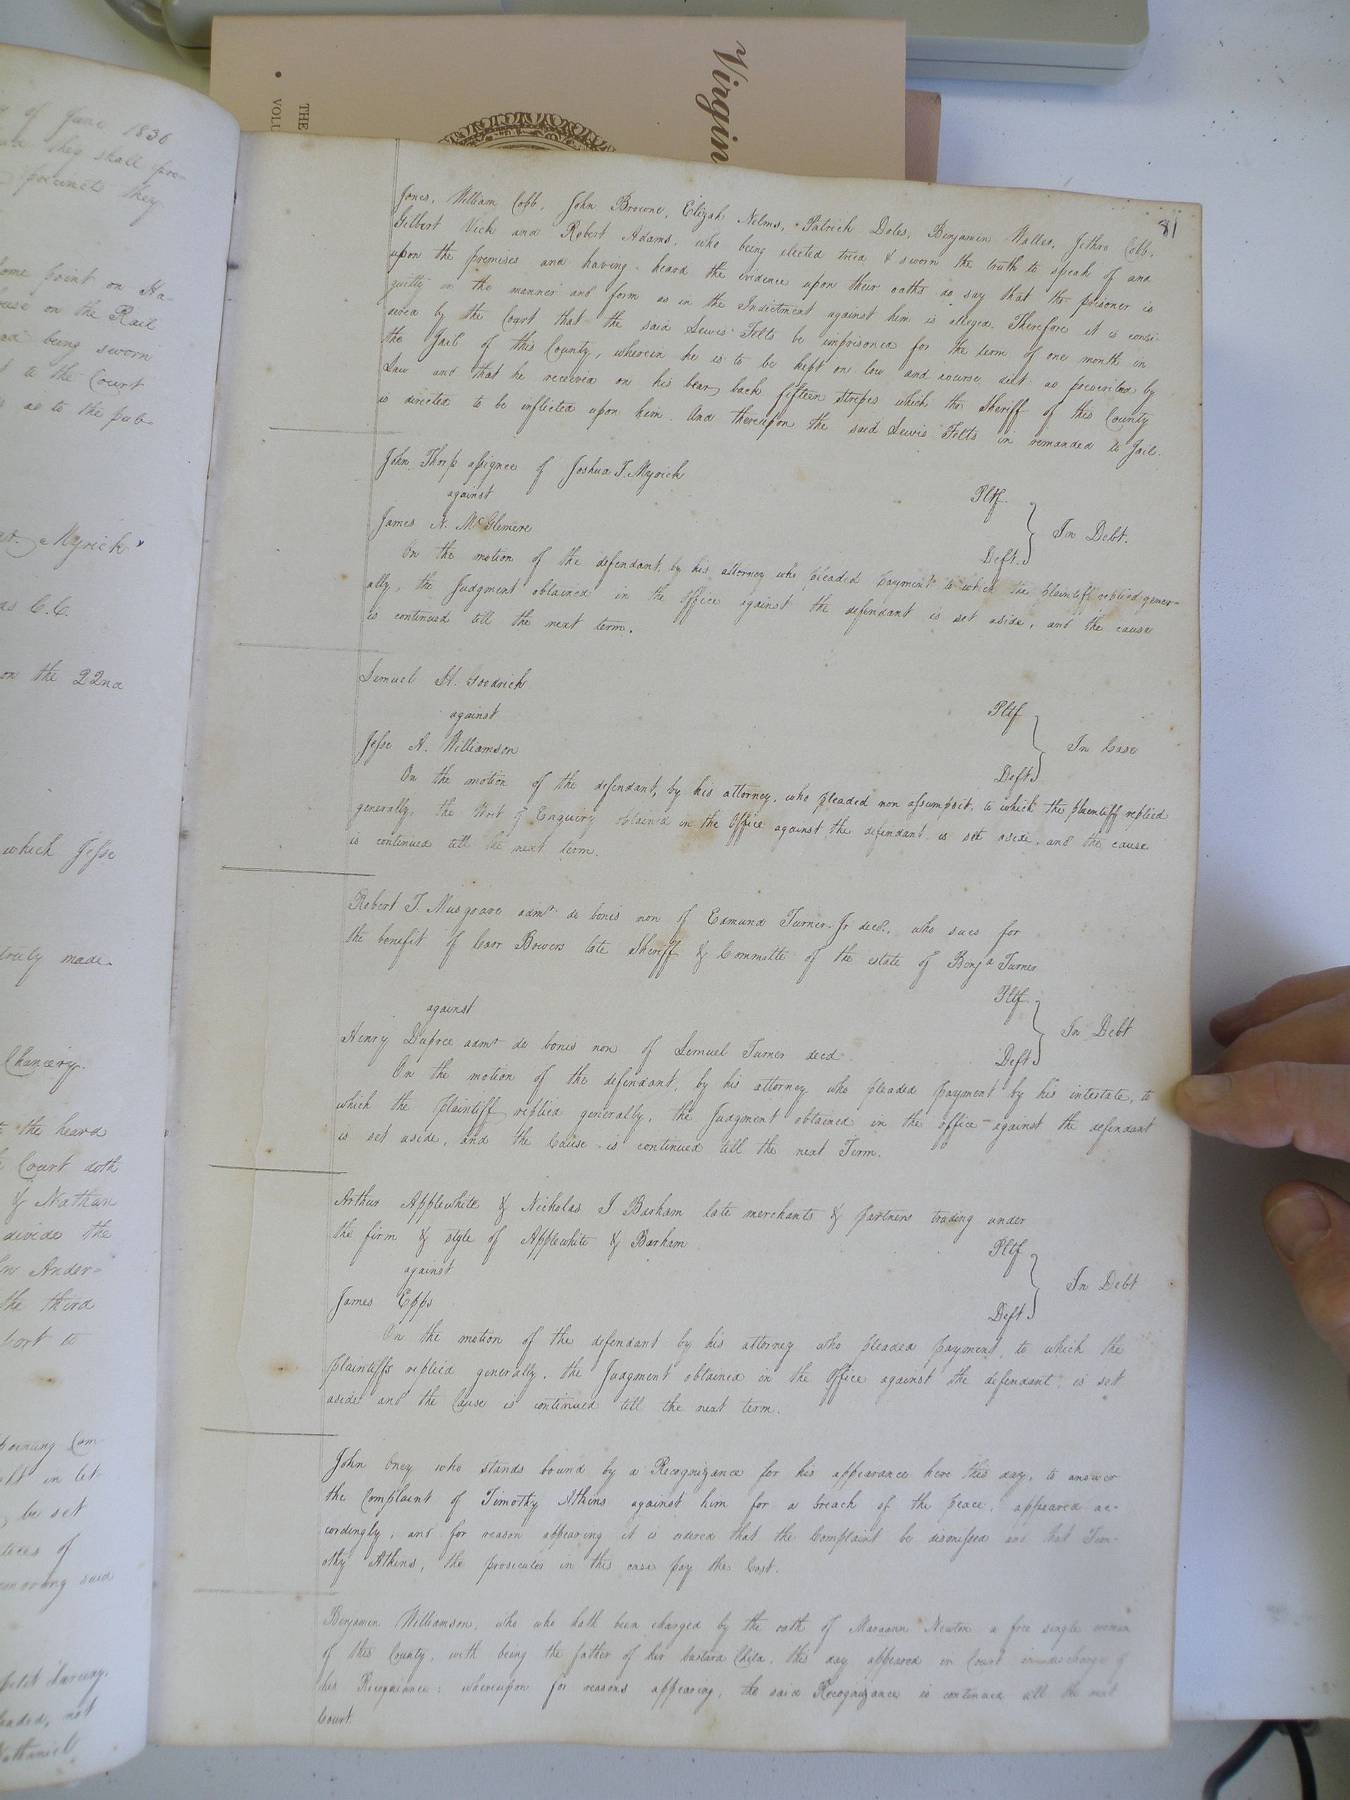 Virgin
THE
VOLU
of June 1836
they shall pre-
precincts they
some point on Ha-
on the Rail
being sworn
to the Court
as to the pub-
Myrick
as C.C.
on the 22nd
which Jesse
truly made.
Chancery.
the heard
Court doth
& Nathan
divide the
Ander-
the third
port to
Com-
in let-
be set
of
removing said
petit Larceny.
not
Nathaniel
81
Jones, William Cobb, John Browne, Elizah Nelms, Patrick Doles, Benjamin Waller, Jethro Cobb,
Gilbert Vick and Robert Adams, who being elected tried & sworn the truth to speak of and
upon the premises and having heard the evidence upon their oaths do say that the prisoner is
guilty in the manner and form as in the Indictment against him is alleged. Therefore it is consi-
dered by the Court that the said Lewis Felts be imprisoned for the term of one month in
the Jail of this County, wherein he is to be kept on low and course diet as prescribed by
Law and that he received on his bear back fifteen stripes which the Sheriff of this County
is directed to be inflicted upon him. And thereupon the said Lewis Felts in remanded to Jail.
John Thorp assignee of Joshua T. Myrick
Pltf
against
In Debt.
James N. McGlemere
Deft.
On the motion of the defendant, by his attorney who pleaded payment to which the plaintiff replied gener-
ally, the Judgment obtained in the office against the defendant is set aside, and the cause
is continued till the next term.
Lemuel H. Goodrich
Pltf
against
In Case
Jesse A. Williamson
Deft
On the motion of the defendant, by his attorney, who pleaded non assumpsit, to which the plaintiff replied
generally, the Writ of Enquiry obtained in the Office against the defendant is set aside, and the cause
is continued till the next term.
Robert T. Musgrave admr. de bonis non of Edmund Turner Jr decd., who sues for
the benefit of Carr Bowers late Sheriff & Committe of the estate of Benja Turner
Pltf
against
In Debt
Henry Dupree admr de bonis non of Lemuel Turner decd.
Deft
On the motion of the defendant, by his attorney who pleaded payment by his intestate, to
which the plaintiff replied generally, the Judgment obtained in the office against the defendant
is set aside, and the Cause is continued till the next Term.
Arthur Applewhite & Nicholas J Barham late merchants & partners trading under
the firm & style of Applewhite & Barham
Pltf
against
In Debt
James Epps
Deft
On the motion of the defendant by his attorney who pleaded payment, to which the
plaintiffs replied generally, the Judgment obtained in the Office against the defendant is set
aside and the Cause is continued till the next term.
John Oney who stands bound by a Recognizance for his appearance here this day, to answer
the Complaint of Timothy Atkins against him for a breach of the peace, appeared ac-
cordingly, and for reason appearing it is ordered that the Complaint be dismissed and that Tim-
othy Atkins, the prosecutor in this case pay the Cost.
Benjamin Williamson, who who hath been charged by the oath of Maraann Newton a free single woman
of this County, with being the father of her bastard Child, this day appeared in Court in discharge of
his Recognizance; whereupon for reasons appearing, the said Recognizance is continued till the next
Court.